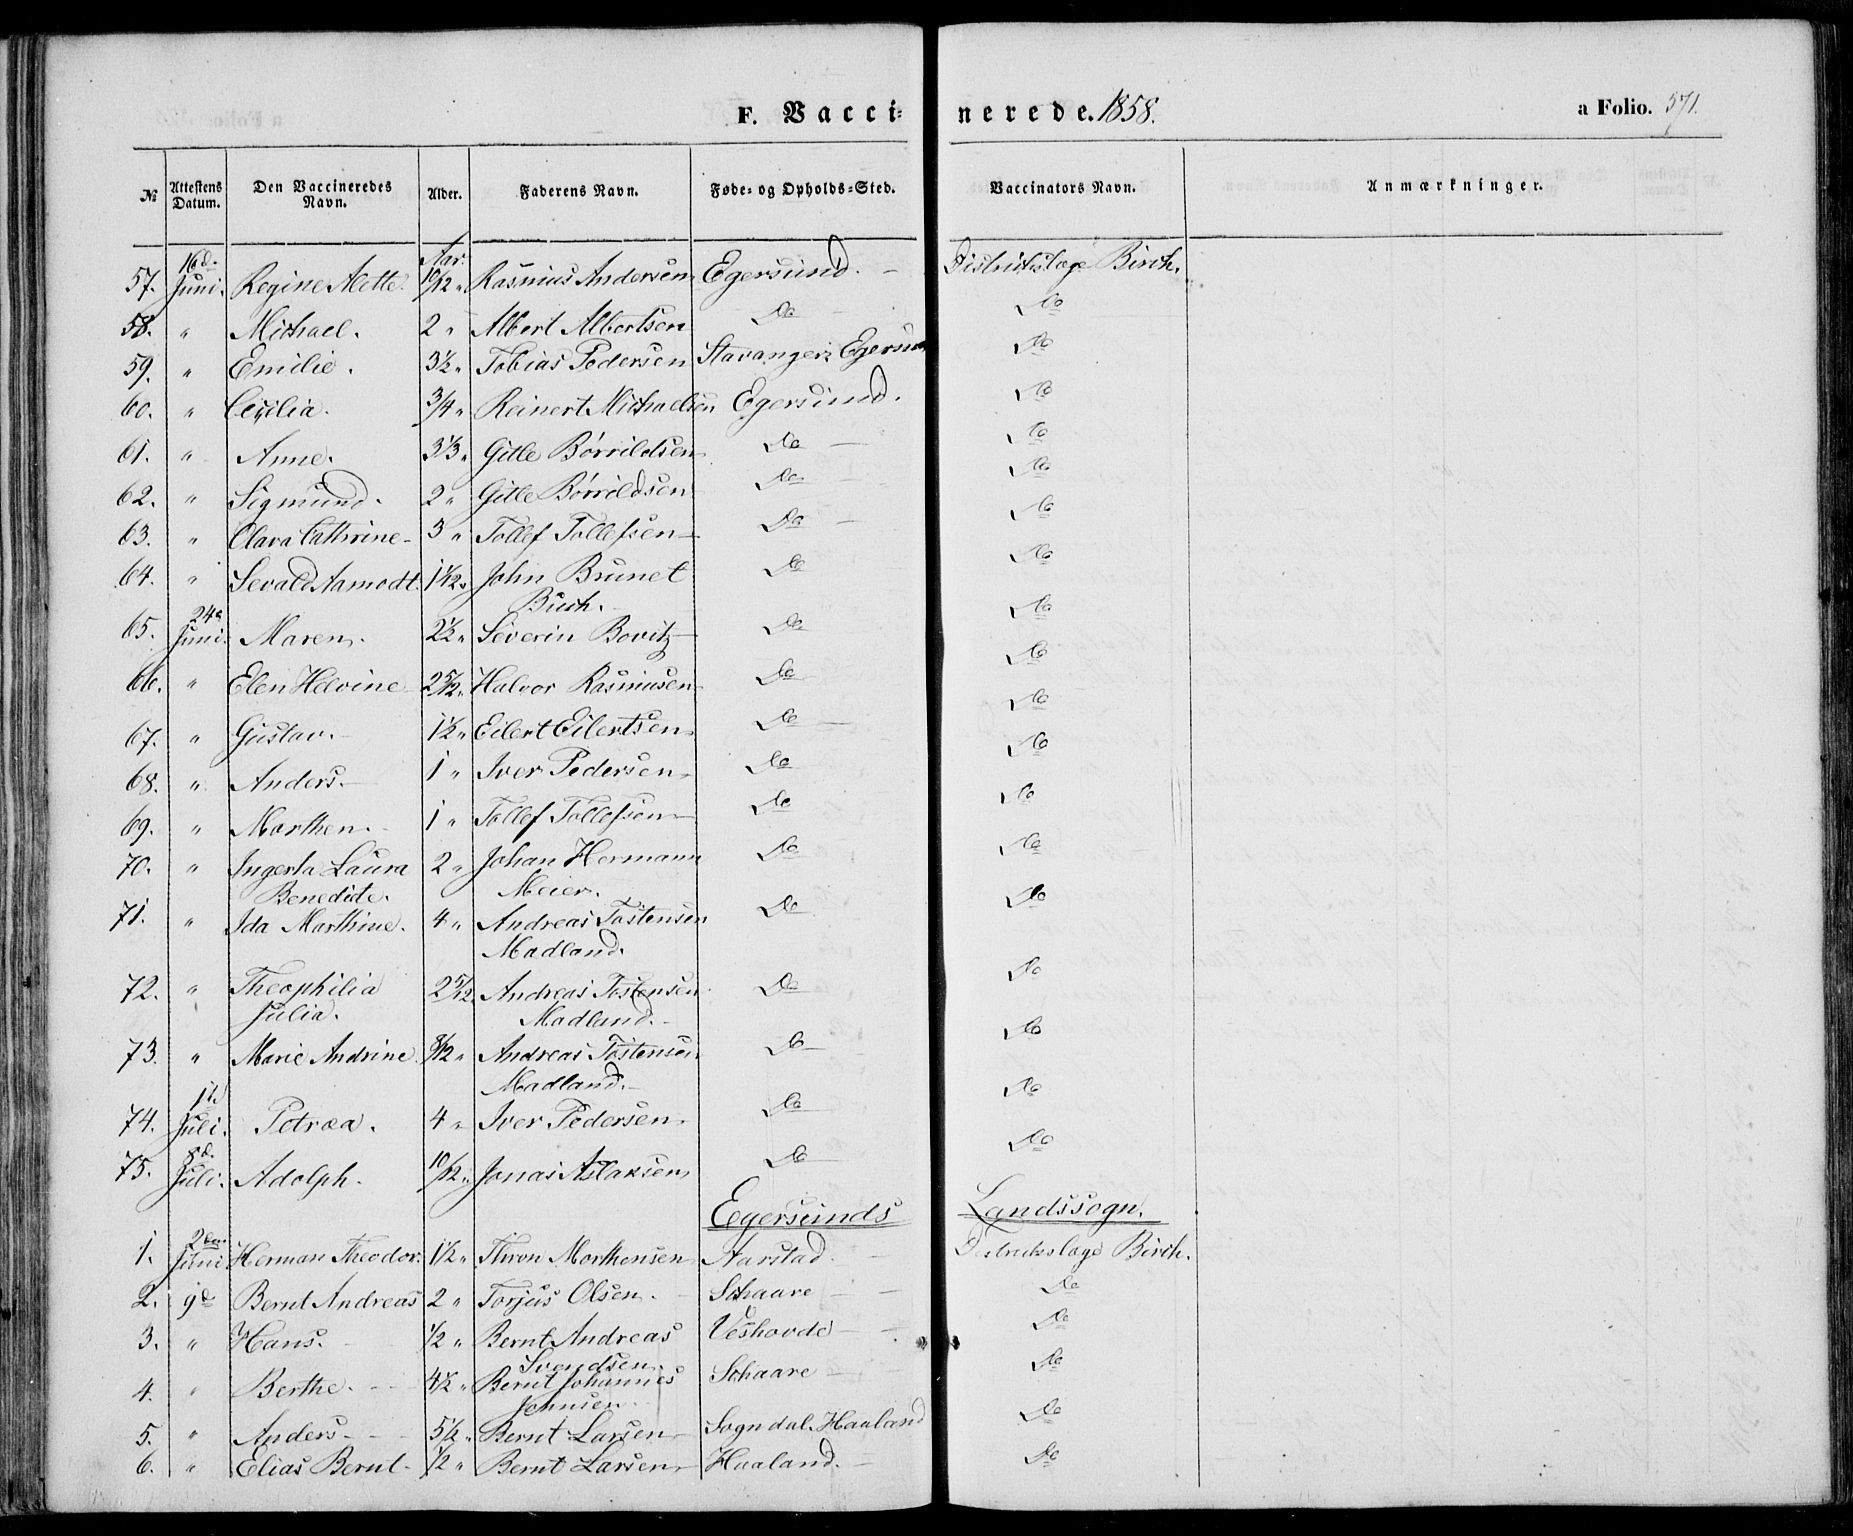 F. Vaccinerede. 1858. a Folio. 571.
No Attestens Datum. Den Vaccineredes Navn. Alder. Faderens Navn. Føde- og Opholds-Sted. Vaccinators Navn. Anmærkninger.
57. 16d Juni. Regine Mette. 10/12 Aar. " Rasmus Andersen Egersund. Distriktslæge Birch.
58. " Michael. 2 " Albert Albertsen Do Do
59. " Emilie. 3½ " Tobias Pedersen Stavanger: Egersund Do
60. " Cicilia. 3/4 " Reinert Michaelsen Egersund. Do
61. " Anne. 3⅓ " Gitle Börrildsen Do Do
62. " Sigmund. 2 " Gitle Börrildsen Do Do
63. " Clara Cathrine 3 " Tollef Tollefsen Do Do
64. " Sevald Aamodt. 1½ " John Brunet Do Do
Buch.
65. 24d Juni. Maren. 2½ " Severin Bovitz Do Do
66. " Elen Helvine 2 5/12 " Halvor Rasmusen Do Do
67. " Gustav. 1½ " Eilert Eilertsen Do Do
68. " Anders. 1 " Iver Pedersen Do Do
69. " Marthen. 1 " Tollef Tollefsen Do Do
70. " Ingerta Laura 2 " Johan Hermann Do Do
Benedicte. Meier.
71. " Ida Marthine. 4 " Andreas Tostensen Do Do
Madland.
72. " Theophilia 2 5/12 Andreas Tostensen Do Do
Julia. Madland.
73. " Marie Andrine 8/12 " Andreas Tostensen Do Do
Madland.
74. 1d Juli. Petræa. 4 " Iver Pedersen Do Do
75. 8d Juli. Adolph. 10/12 " Jonas Aslaksen Do Do
Egersunds Landssogn.
1. 2den Juni Herman Theodor. 1½ " Thron Morthensen Aarstad Distrikslæge Birch.
2. 9d Bernt Andreas 2 " Torjus Olsen. Schaare Do
3. " Hans. ½ " Bernt Andreas Veshovde Do
Svendsen.
4. " Berthe. 4½ " Bernt Johannes Schaare Do
Johnsen
5. " Anders 5½ " Bernt Larsen Sogndal. Haaland Do
6. " Elias Bernt ½ " Bernt Larsen Haaland. Do